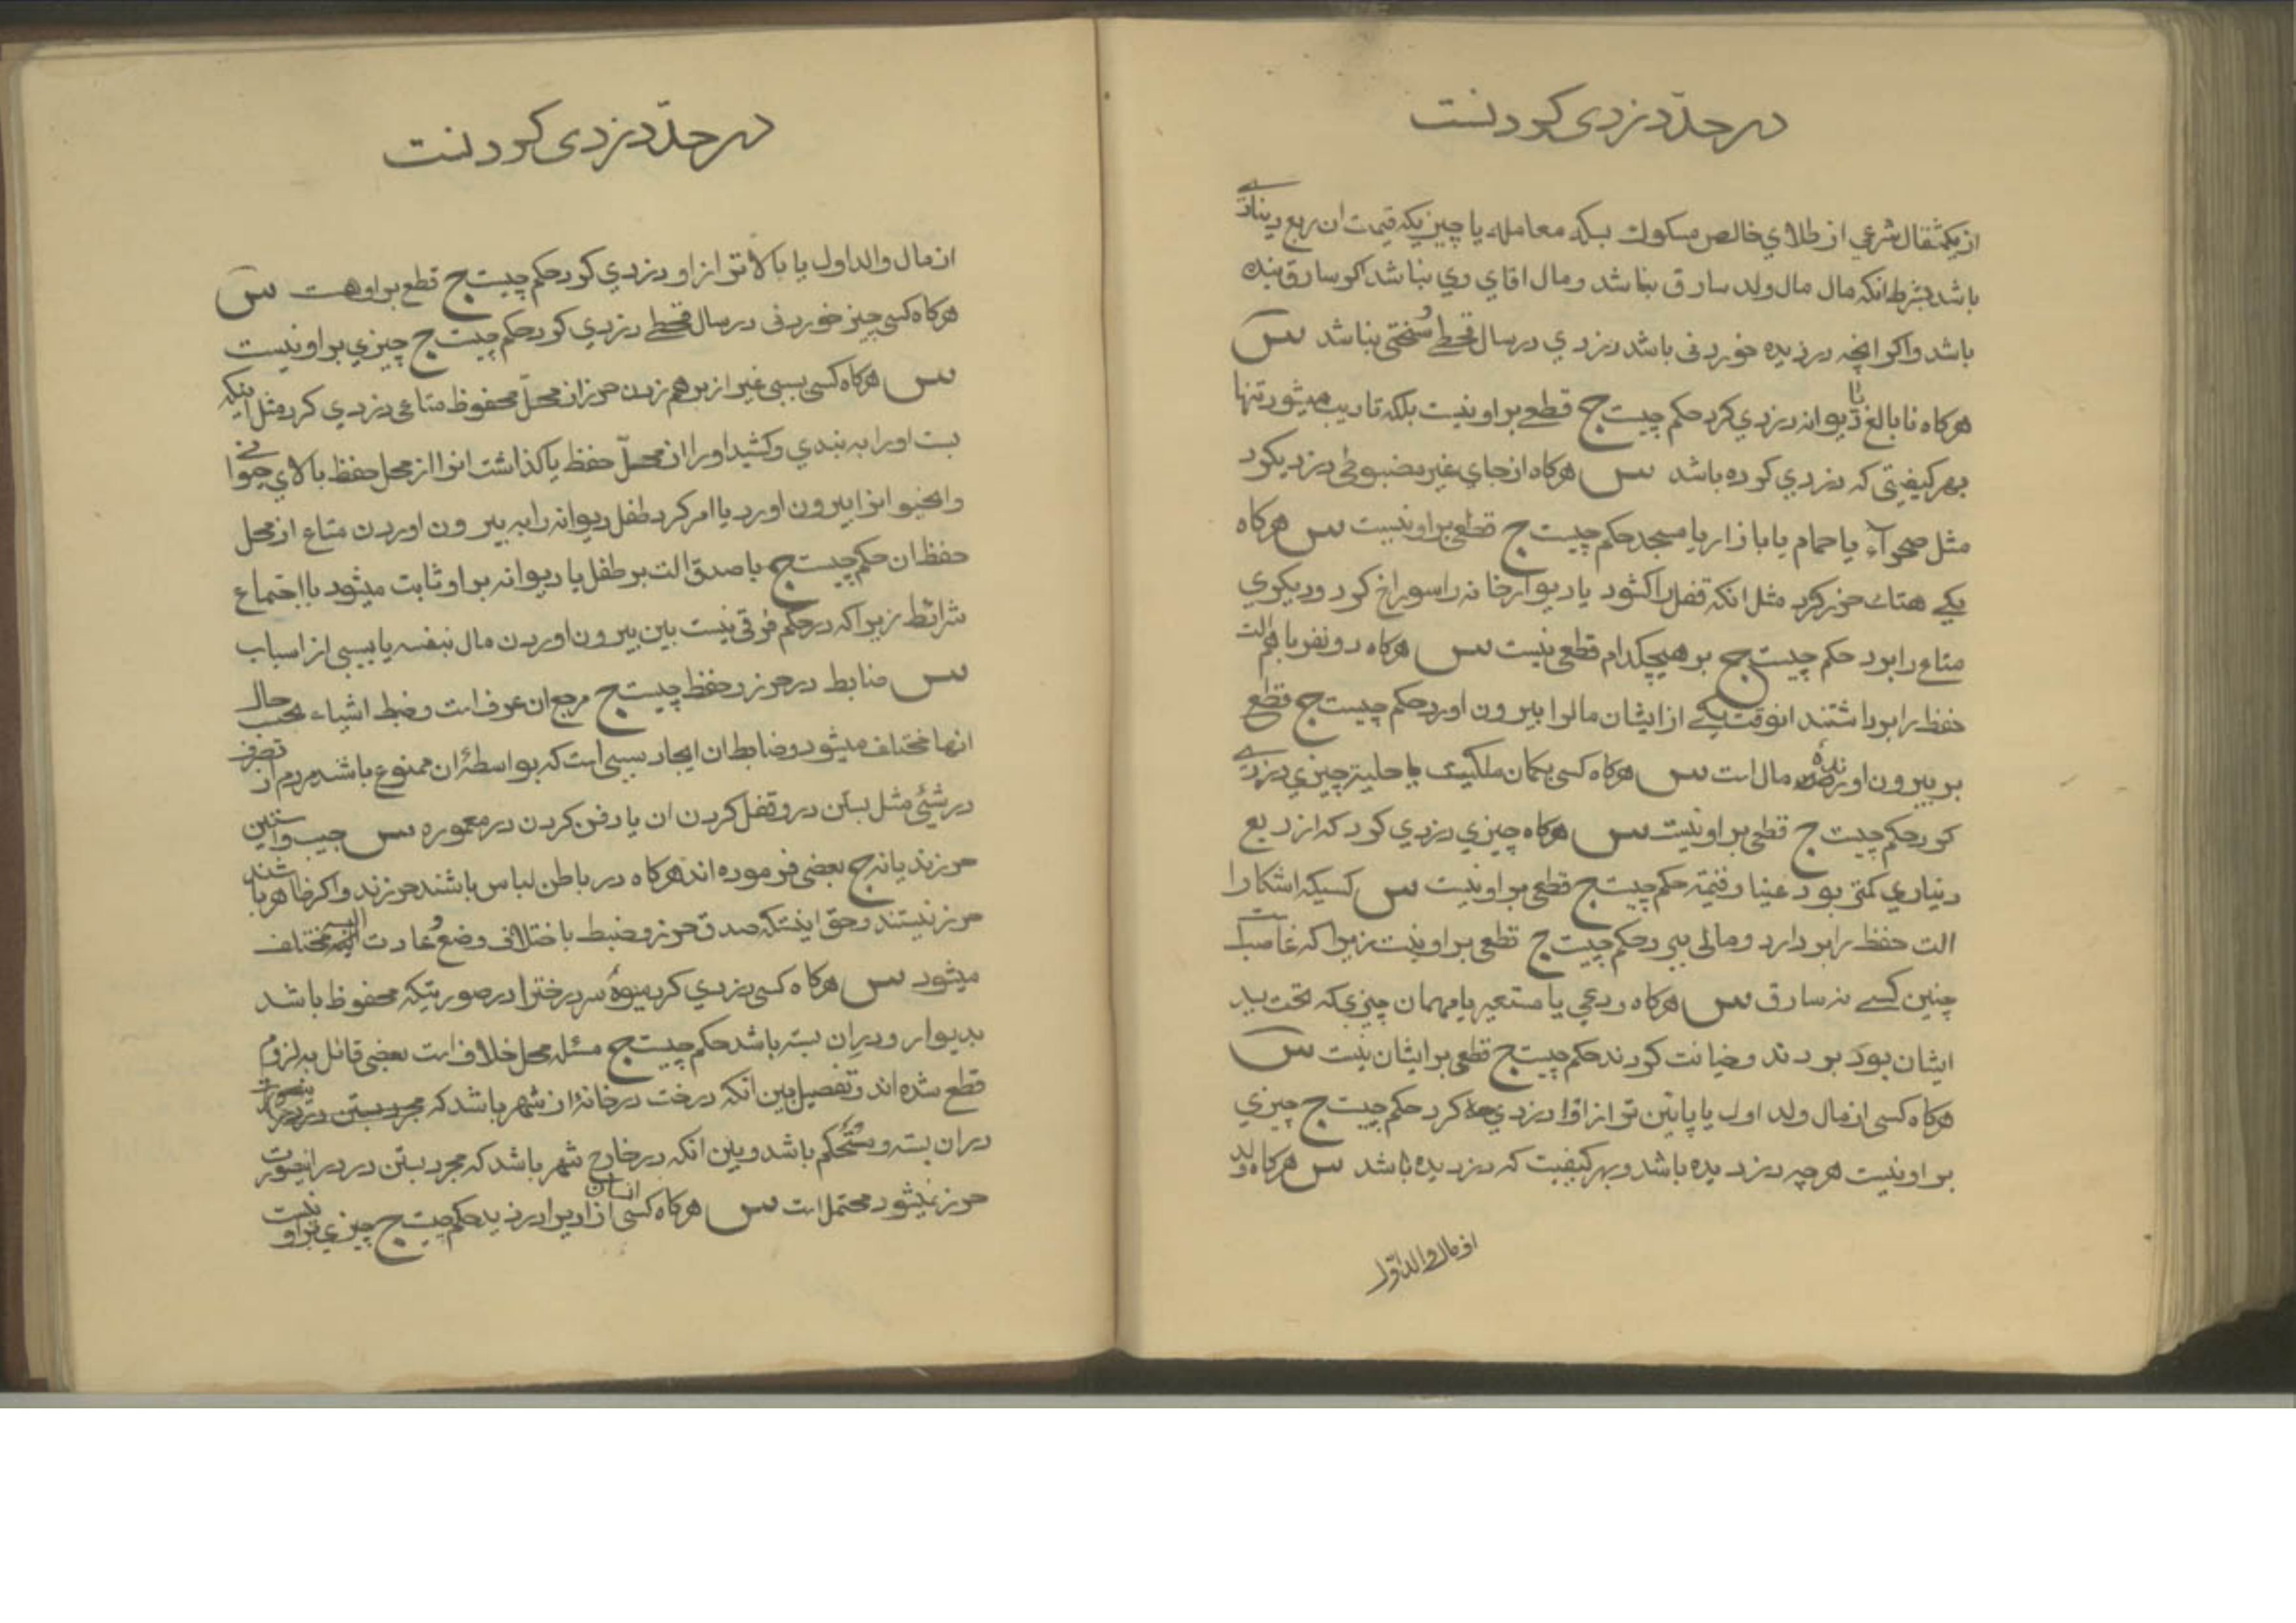 در حدّ دزدی کردنست
از یکمثقال شرعی از طلای خالص مسکوک بسکه معامله یا چیزیکه قیمت ان ربع دیناری
باشد بشرط انکه مال مال ولد سارق نباشد و مال اقای وی نباشد اکر سارق بنده
باشد واکر انچه دزدیده خوردنی باشد دزدی در سال قحطی وسختی نباشد س
هرکاه نابالغ یا دیوانه دزدی کرد حکم چیست ج قطعی بر او نیست بلکه تادیب میشود تنها
بهر کیفیتی که دزدی کرده باشد س هرکاه از جای غیر مضبوطی دزدی کرد
مثل صحراء یا حمام یا بازار یا مسجد حکم چیست ج قطعی بر او نیست س هرکاه
یکی هتک حرز کرد مثل انکه قفل را کشود یا دیوار خانه را سوراخ کرد و دیکری
متاع را برد حکم چیست ج بر هیچکدام قطعی نیست س هرکاه دو نفر با هم الت
حفظ را برداشتند انوقت یکی از ایشان مال را بیرون اورد حکم چیست ج قطع
بر بیرون اورنده مال است س هرکاه کسی بکمان ملکیت یا حلیت چیزی دزدی
کرد حکم چیست ج قطعی بر او نیست س هرکاه چیزی دزدی کرد که از ربع
دیناری کمتر بود عینا و قیمة حکم چیست ج قطعی بر او نیست س کسیکه اشکارا
الت حفظ را بردارد و مالی ببرد حکم چیست ج قطعی بر او نیست زیرا که غاصبست
چنین کسی نه سارق س هرکاه ودعی یا مستعیر یا مهمان چیزی که تحت ید
ایشان بود بردند و خیانت کردند حکم چیست ج قطعی بر ایشان نیست س
هرکاه کسی از مال ولد اول یا پایین تر از او را دزدی کرد حکم چیست ج چیزی
بر او نیست هرچه دزدیده باشد و بهر کیفیت که دزدیده باشد س هرکاه ولد
از مال والد اول
در حدّ دزدی کردنست
از مال والد اول یا بالا تر از او دزدی کرد حکم چیست ج قطع بر او هست س
هرکاه کسی چیز خوردنی در سال قحطی دزدی کرد حکم چیست ج چیزی بر او نیست
س هرکاه کسی بسببی غیر از بر هم زدن حرز از محلّ محفوظ متاعی دزدی کرد مثل اینکه
بست او را به بندی و کشید او را از محلّ حفظ یا کذاشت انرا از محل حفظ بالای حیوانی
و ان حیوان انرا بیرون اورد یا امر کرد طفل دیوانه را به بیرون اوردن متاع از محل
حفظ ان حکم چیست ج با صدق الت بر طفل یا دیوانه بر او ثابت میشود با اجتماع
شرائط زیرا که در حکم فرقی نیست بین بیرون اوردن مال بنفسه یا بسببی از اسباب
س ضابط در حرز و حفظ چیست ج مرجع ان عرف است و ضبط اشیاء بحسب حال
انها مختلف میشود و ضابط ان ایجاد سببی است که بواسطهٔ ان ممنوع باشد مردم از تصرف
در شیئی مثل بستن در و قفل کردن ان یا دفن کردن در معموره س جیب و استین
حرزند یا نه ج بعضی فرموده اند هرکاه در باطن لباس باشند حرزند واکر ظاهر باشند
حرز نیستند و حق اینستکه صدق حرز و ضبط باختلاف وضع و عادت البسه مختلف
میشود س هرکاه کسی دزدی کرد میوهٔ سر درخت را در صورتیکه محفوظ باشد
بدیوار و در ان بسته باشد حکم چیست ج مسئله محل خلاف است بعضی قائل به لزوم
قطع شده اند و تفصیل بین انکه درخت در خانهٔ از شهر باشد که مجرد بستن در
در ان بسته و مستحکم باشد و بین انکه در خارج شهر باشد که مجرد بستن در در اینصورت
حرز نمیشود محتمل است س هرکاه کسی انسان ازادیرا دزدید حکم چیست ج چیزی بر او نیست